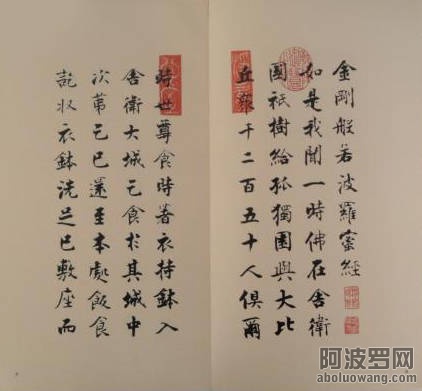 金剛般若波羅蜜經
如是我聞一時佛在舍衛
國祇樹給孤獨園與大比
丘眾千二百五十人俱爾
時世尊食時著衣持鉢入
舍衛大城乞食於其城中
次第乞已還至本處飯食
訖收衣鉢洗足已敷座而
阿波罗网
aboluowang.com